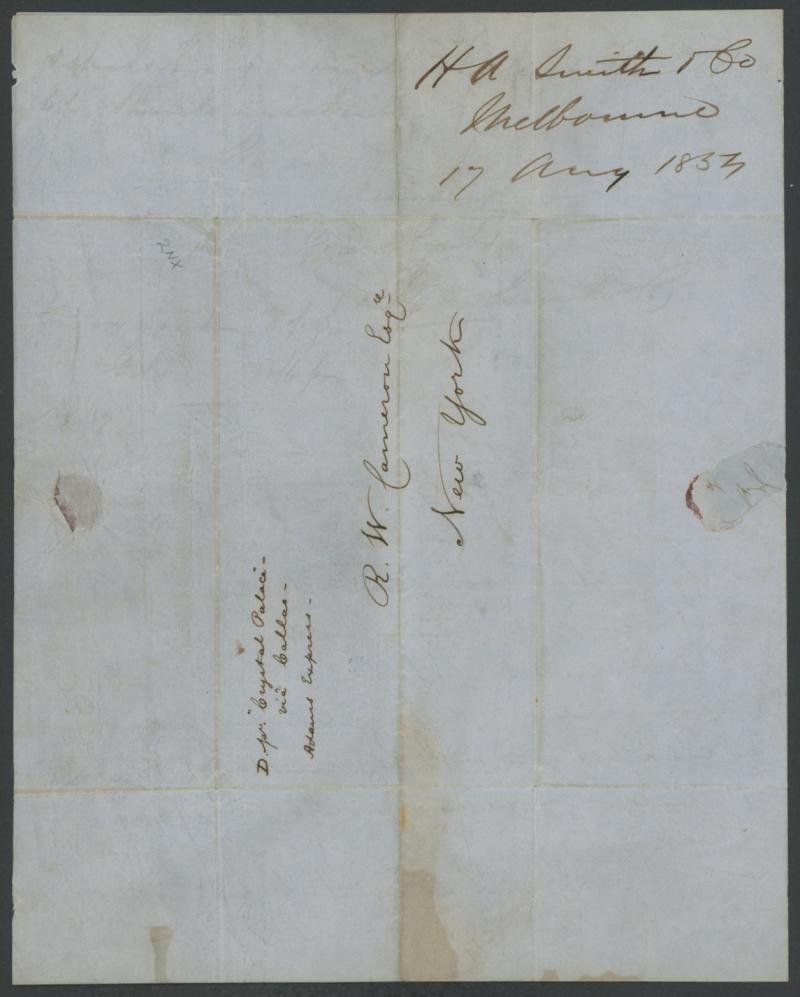 H A Smith & Co
Melbourne
17 Aug 1854
R. W. Cameron Esqre
New York
D. pr. "Crystal Palace" -
via Callao -
Adams Express -